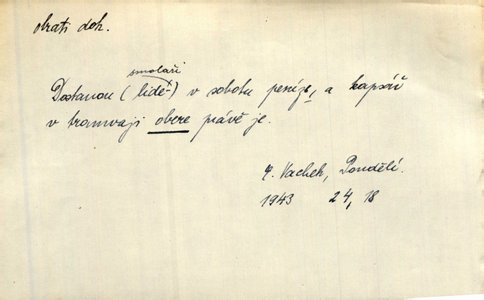 obrati dok.
smolaři
Dostanou (lidé) v sobotu peníze, a kapsář
v tramvaji obere právě je.
E. Vachek, Pondělí.
1943 24, 18